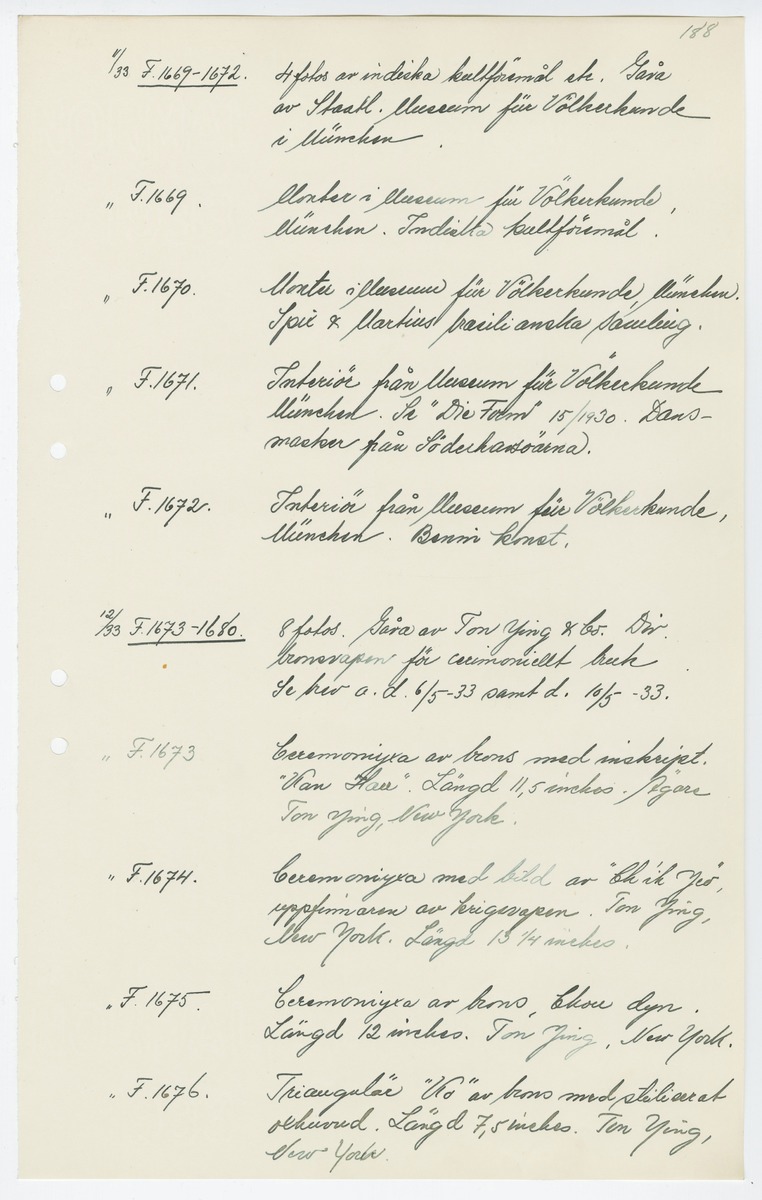 188
11/33 F.1669-1672. 4 fotos av indiska kultföremål etc. Gåva
av Staatl. Museum für Völkerkunde
i München.
" F.1669. Monter i Museum für Völkerkunde,
München. Indiska kultföremål.
" F.1670. Monter i Museum für Völkerkunde, München.
Spix & Martius brasilianska samling.
" F.1671. Interiör från Museum für Völkerkunde
München. Se "Die Form" 15/1930. Dans-
masker från Söderhavsöarna.
" F.1672. Interiör från Museum für Völkerkunde,
München. Benin konst.
12/33 F.1673-1680. 8 fotos. Gåva av Ton Ying & Co. Div.
bronsvapen för cerimoniellt bruk.
Se brev a. d. 6/5-33 samt d. 10/5-33.
" F.1673 Ceremoniyxa av brons med inskript.
"Kan Haer". Längd 11,5 inches. Ägare
Ton Ying, New York.
" F.1674. Ceremoniyxa med bild av "Ch'ih Yeö",
uppfinnaren av krigsvapen. Ton Ying,
New York. Längd 13 1/4 inches.
" F.1675. Ceremoniyxa av brons, Chou dyn.
Längd 12 inches. Ton Ying, New York.
" F.1676. Triangulär "Ko" av brons med stiliserat
oxhuvud. Längd 7,5 inches. Ton Ying,
New York.